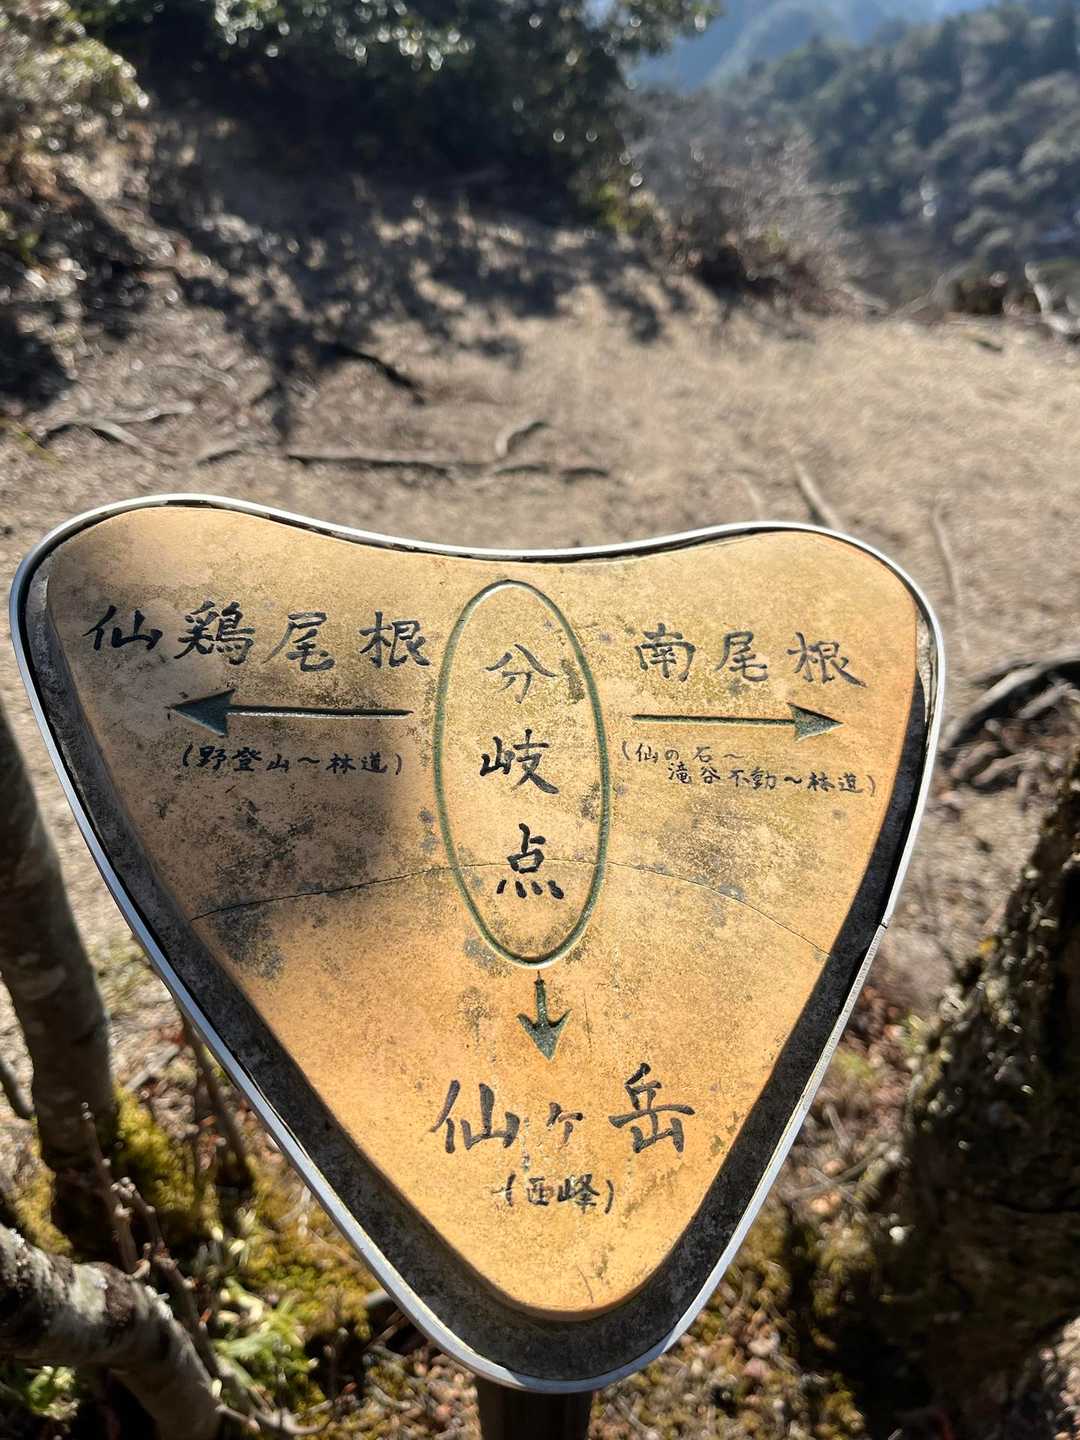 仙鶏尾根
(野登山〜林道)
分岐点
南尾根
(仙の石〜
滝谷不動〜林道)
仙ヶ岳
(西峰)